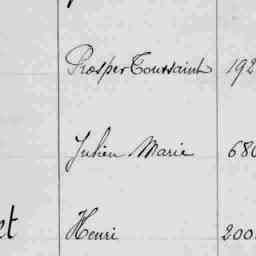 Prosper Toussaint 192
Julien Marie 680
et Henri 200